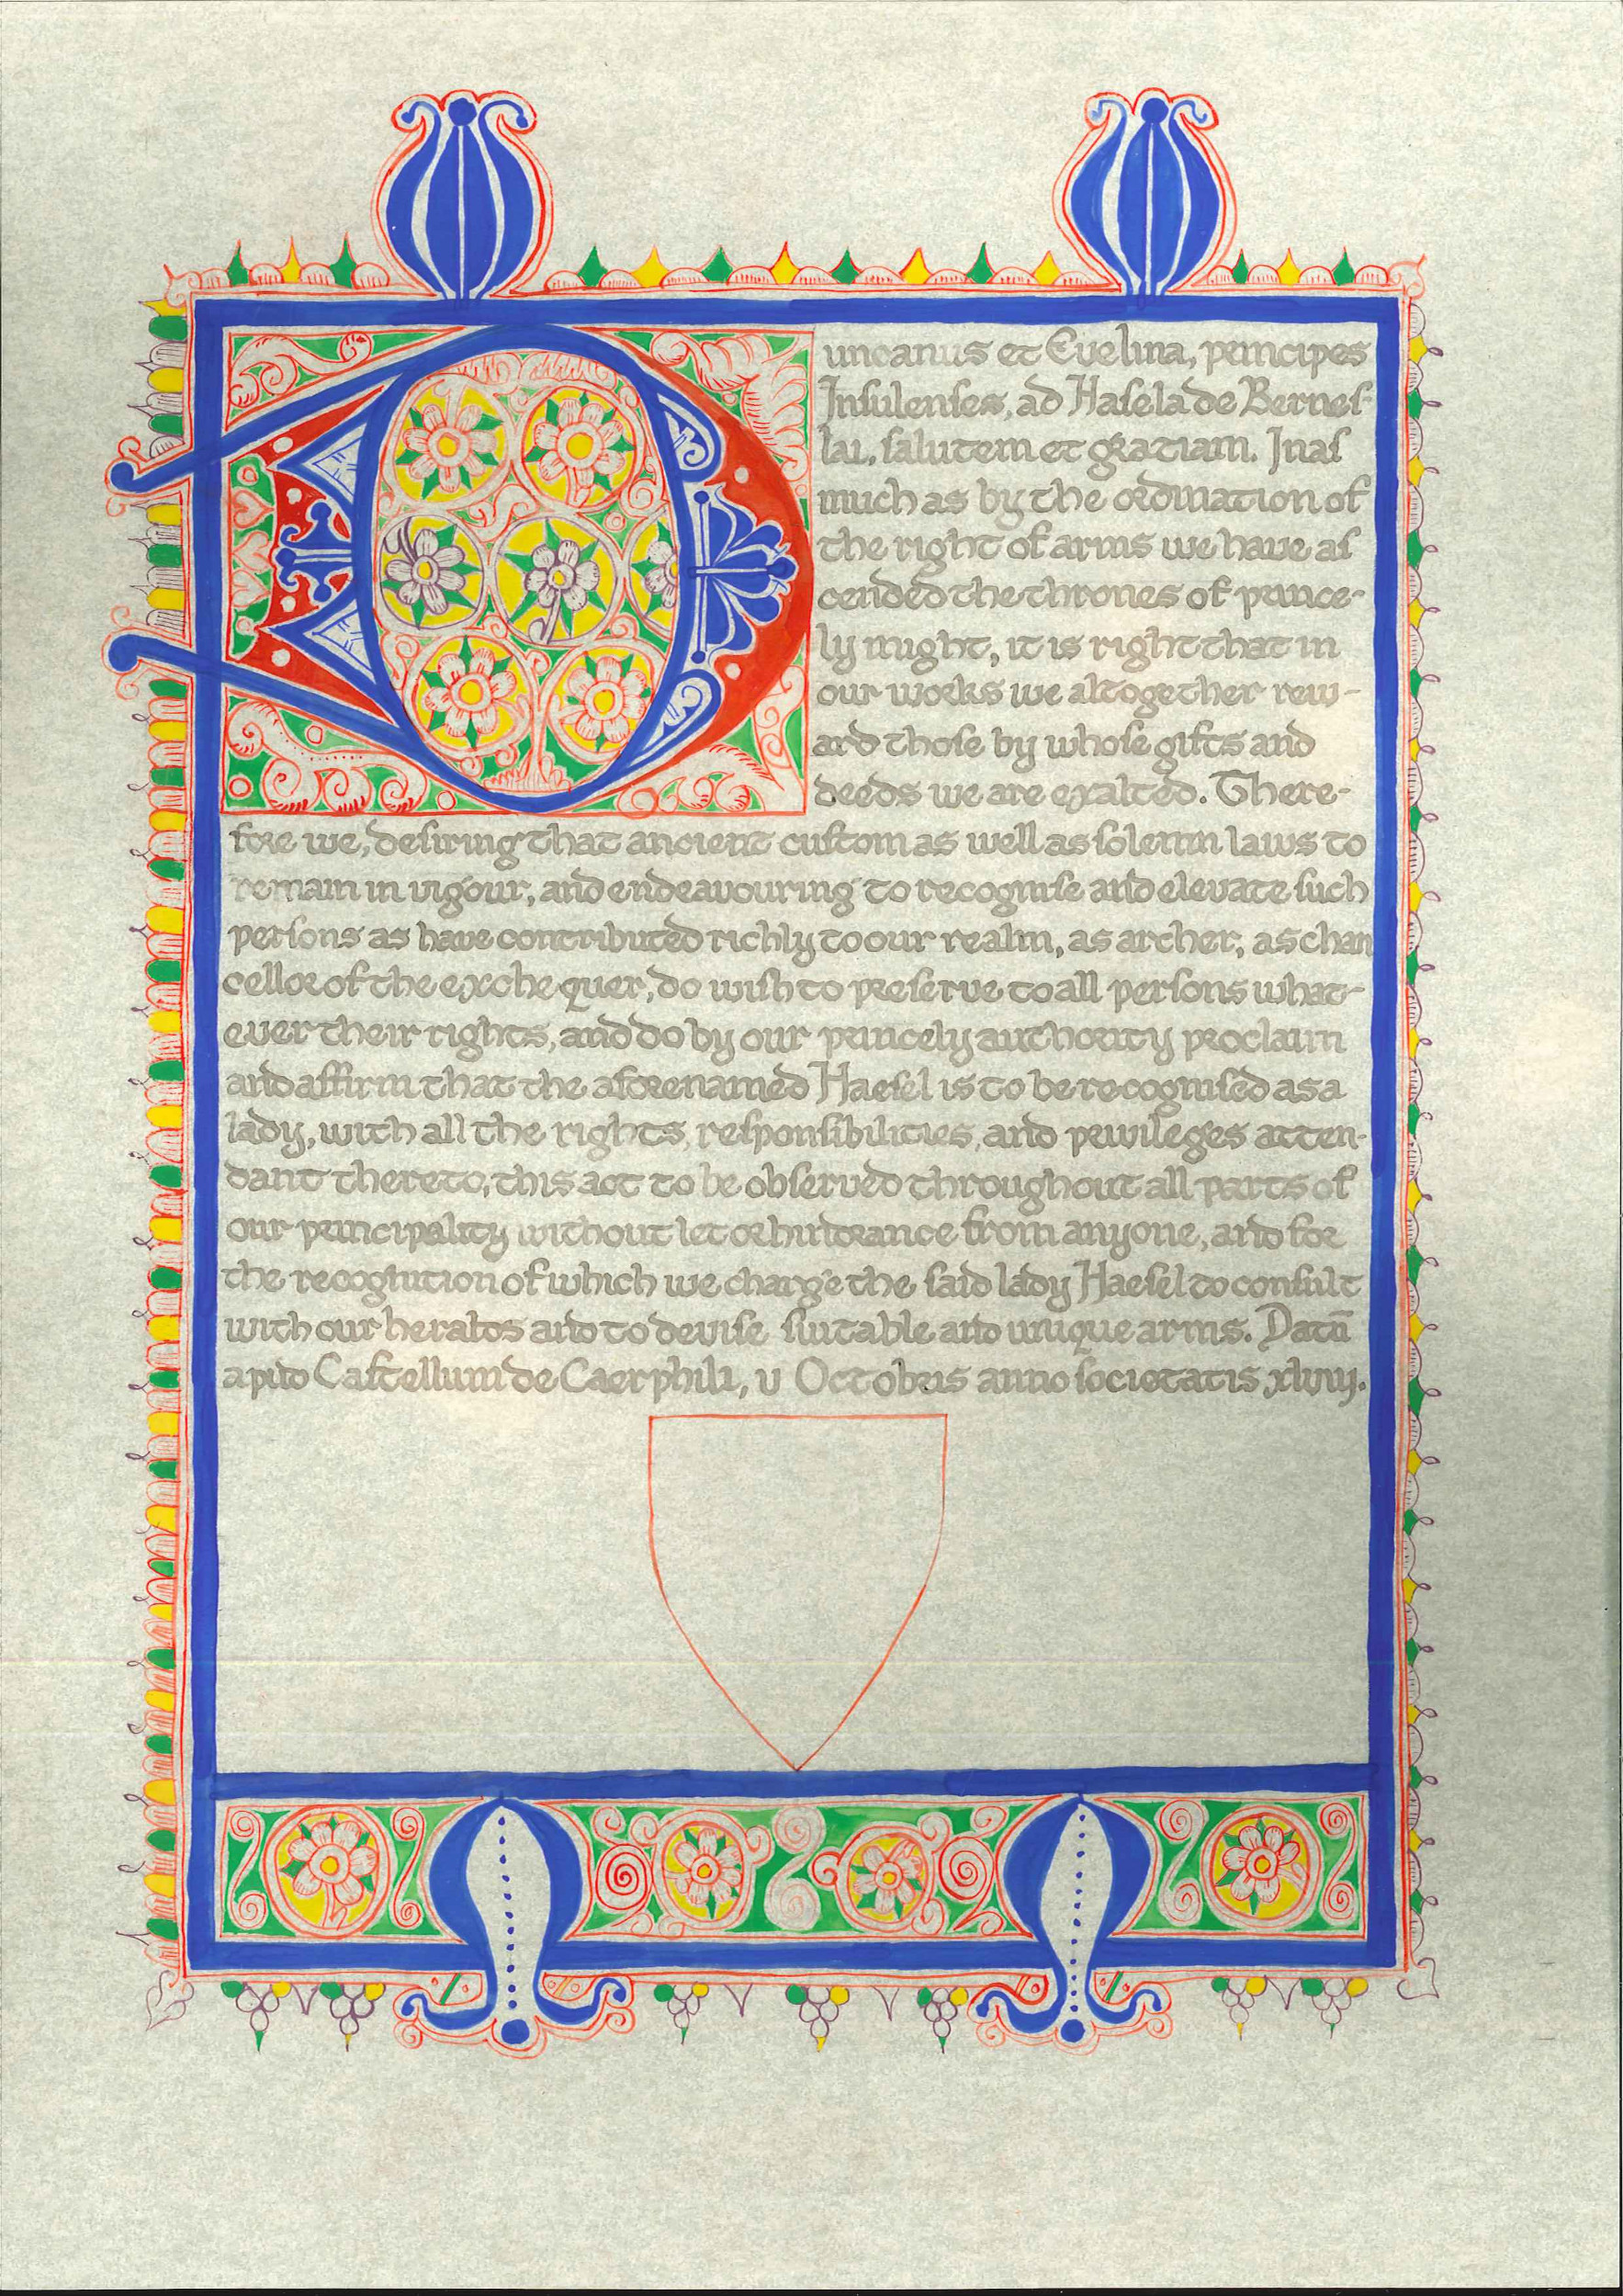 Duncanus et Euelina, principes
Insulenses, ad Hasela de Bernes-
lai, salutem et gratiam. Inas
much as by the ordination of
the right of arms we have as
cended the thrones of prince-
ly might, it is right that in
our works we altogether rew-
ard those by whose gifts and
deeds we are exalted. There-
fore we, desiring that ancient custom as well as solemn laws to
remain in vigour, and endeavouring to recognise and elevate such
persons as have contributed richly to our realm, as archer, as chan
cellor of the exchequer, do wish to preserve to all persons what-
ever their rights, and do by our princely authority proclaim
and affirm that the aforenamed Haesel is to be recognised as a
lady, with all the rights, responsibilities, and privileges atten-
dant thereto, this act to be observed throughout all parts of
our principality without let or hindrance from anyone, and for
the recognition of which we charge the said lady Haesel to consult
with our heralds and to devise suitable and unique arms. Datū
apud Castellum de Caerphili, v Octobris anno societatis xlviij.